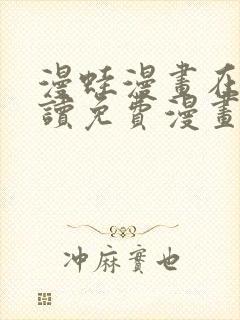 漫蛙漫畫在
讀免費漫畫
冲麻實也